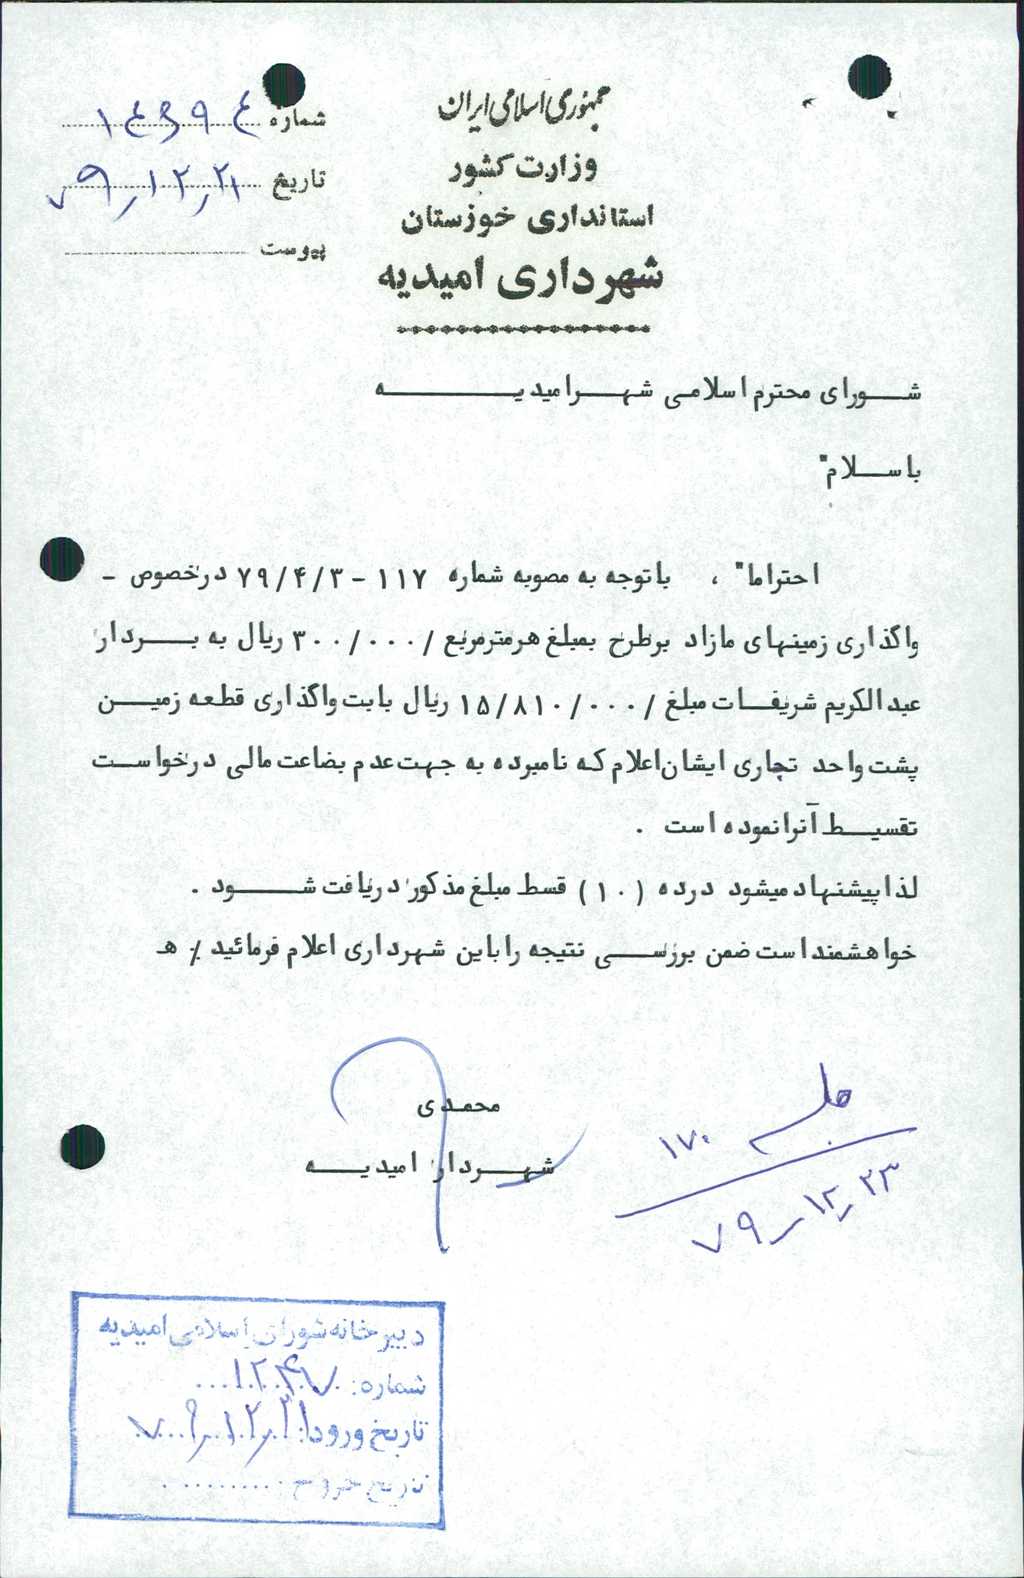 جمهوری اسلامی ایران
وزارت کشور
استانداری خوزستان
شهرداری امیدیه
شماره
تاریخ ۷۹٫۱۲٫۲۱
پیوست
شورای محترم اسلامی شهر امیدیه
با سلام"
احتراما" ، با توجه به مصوبه شماره ۱۱۷ - ۷۹/۴/۳ در خصوص -
واگذاری زمینهای مازاد بر طرح بمبلغ هر مترمربع /۳۰۰/۰۰۰ ریال به بردار
عبدالکریم شریفات مبلغ /۱۵/۸۱۰/۰۰۰ ریال بابت واگذاری قطعه زمین
پشت واحد تجاری ایشان اعلام که نامبرده به جهت عدم بضاعت مالی درخواست
تقسیط آنرا نموده است .
لذا پیشنهاد میشود در ده (۱۰) قسط مبلغ مذکور دریافت شود .
خواهشمند است ضمن بررسی نتیجه را باین شهرداری اعلام فرمائید /. هـ
محمدی
شهردار امیدیه
جلسه ۱۷۰
۷۹٫۱۲٫۲۳
دبیرخانه شورای اسلامی امیدیه
شماره: ۱۲۴۷
تاریخ ورود: ۷۹٫۱۲٫۲۱
تاریخ خروج